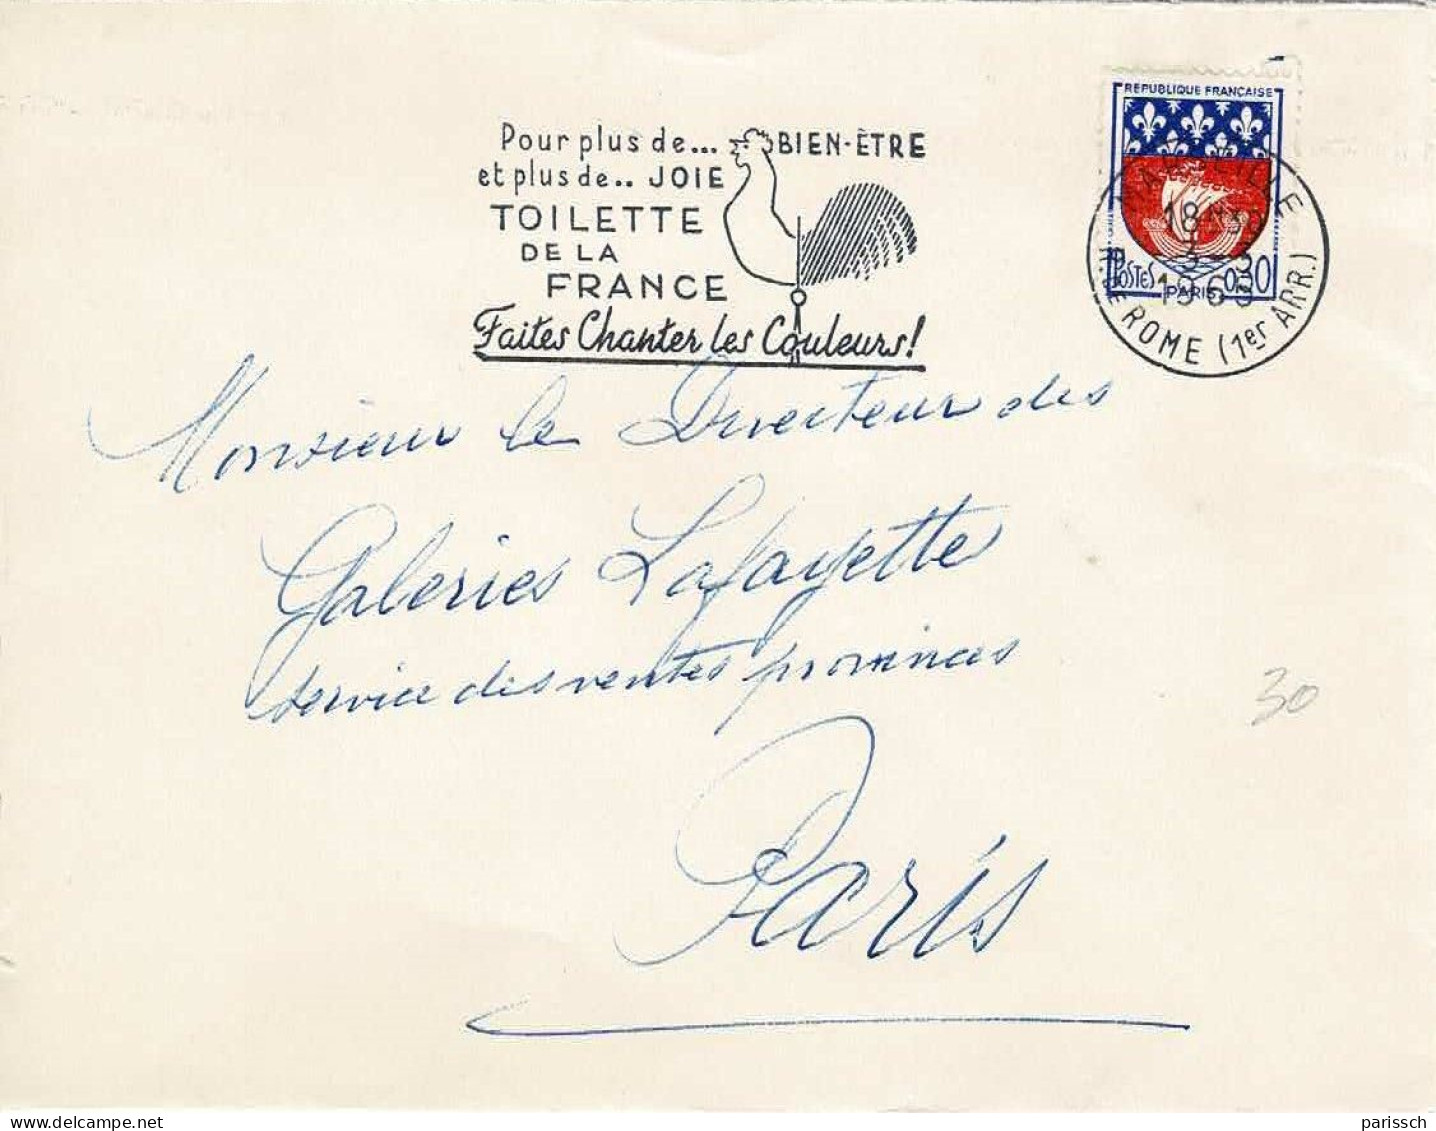 Pour plus de... BIEN-ÊTRE
et plus de.. JOIE
TOILETTE
DE LA
FRANCE
Faites Chanter les Couleurs!
REPUBLIQUE FRANÇAISE
POSTES
PARIS
0,30
MARSEILLE
18H30
R. DE ROME (1er ARR.)
Monsieur le Directeur des
Galeries Lafayette
service des ventes provinces
Paris
30
parissch